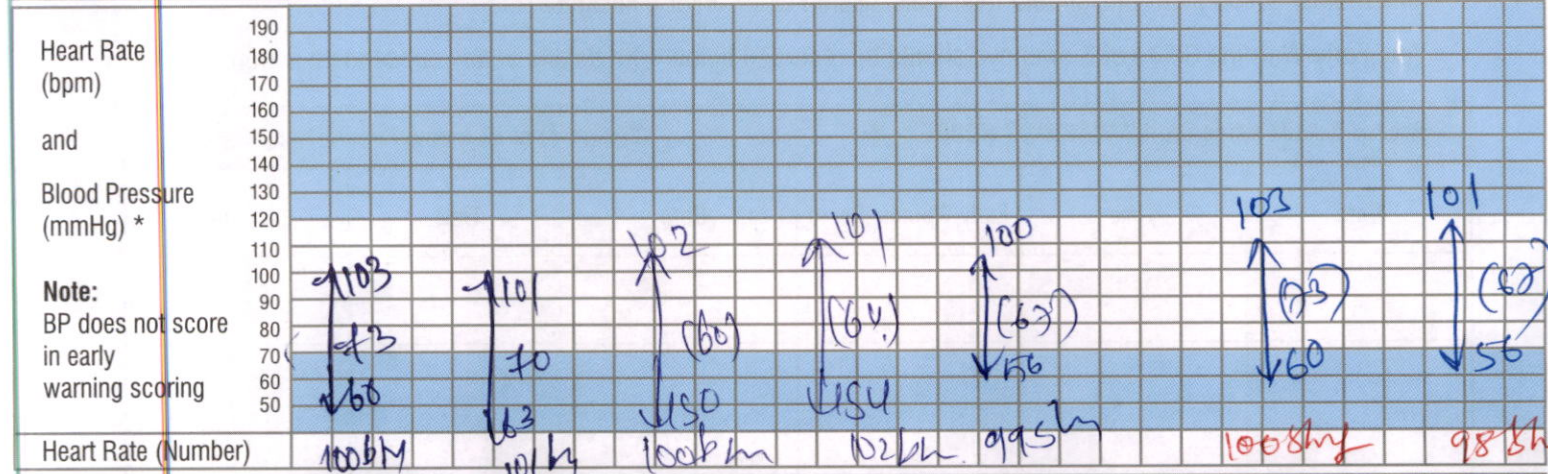 Heart Rate
(bpm)
and
Blood Pressure
(mmHg) *
Note:
BP does not score
in early
warning scoring
190
180
170
160
150
140
130
120
110
100
90
80
70
60
50
103
73
60
101
70
63
102
(60)
50
101
(64)
54
100
(67)
56
103
(73)
60
101
(67)
56
Heart Rate (Number) 100bpm 101 100bpm 102 99 100 98